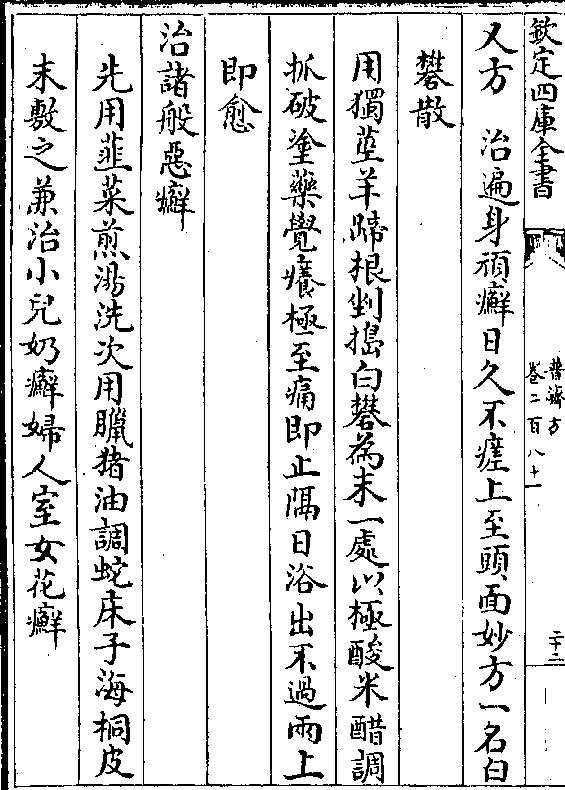 欽定四庫全書
普濟方
卷二百八十一
二十二
又方　治遍身頑癬日久不瘥上至頭面妙方一名白
礬散
用獨莖羊蹄根剉搗白礬為末一處以極酸米醋調
抓破塗藥覺癢極至痛即止隔日浴出不過兩上
即愈
治諸般惡癬
先用韮菜煎湯洗次用臘猪油調蛇床子海桐皮
末敷之兼治小兒奶癬婦人室女花癬